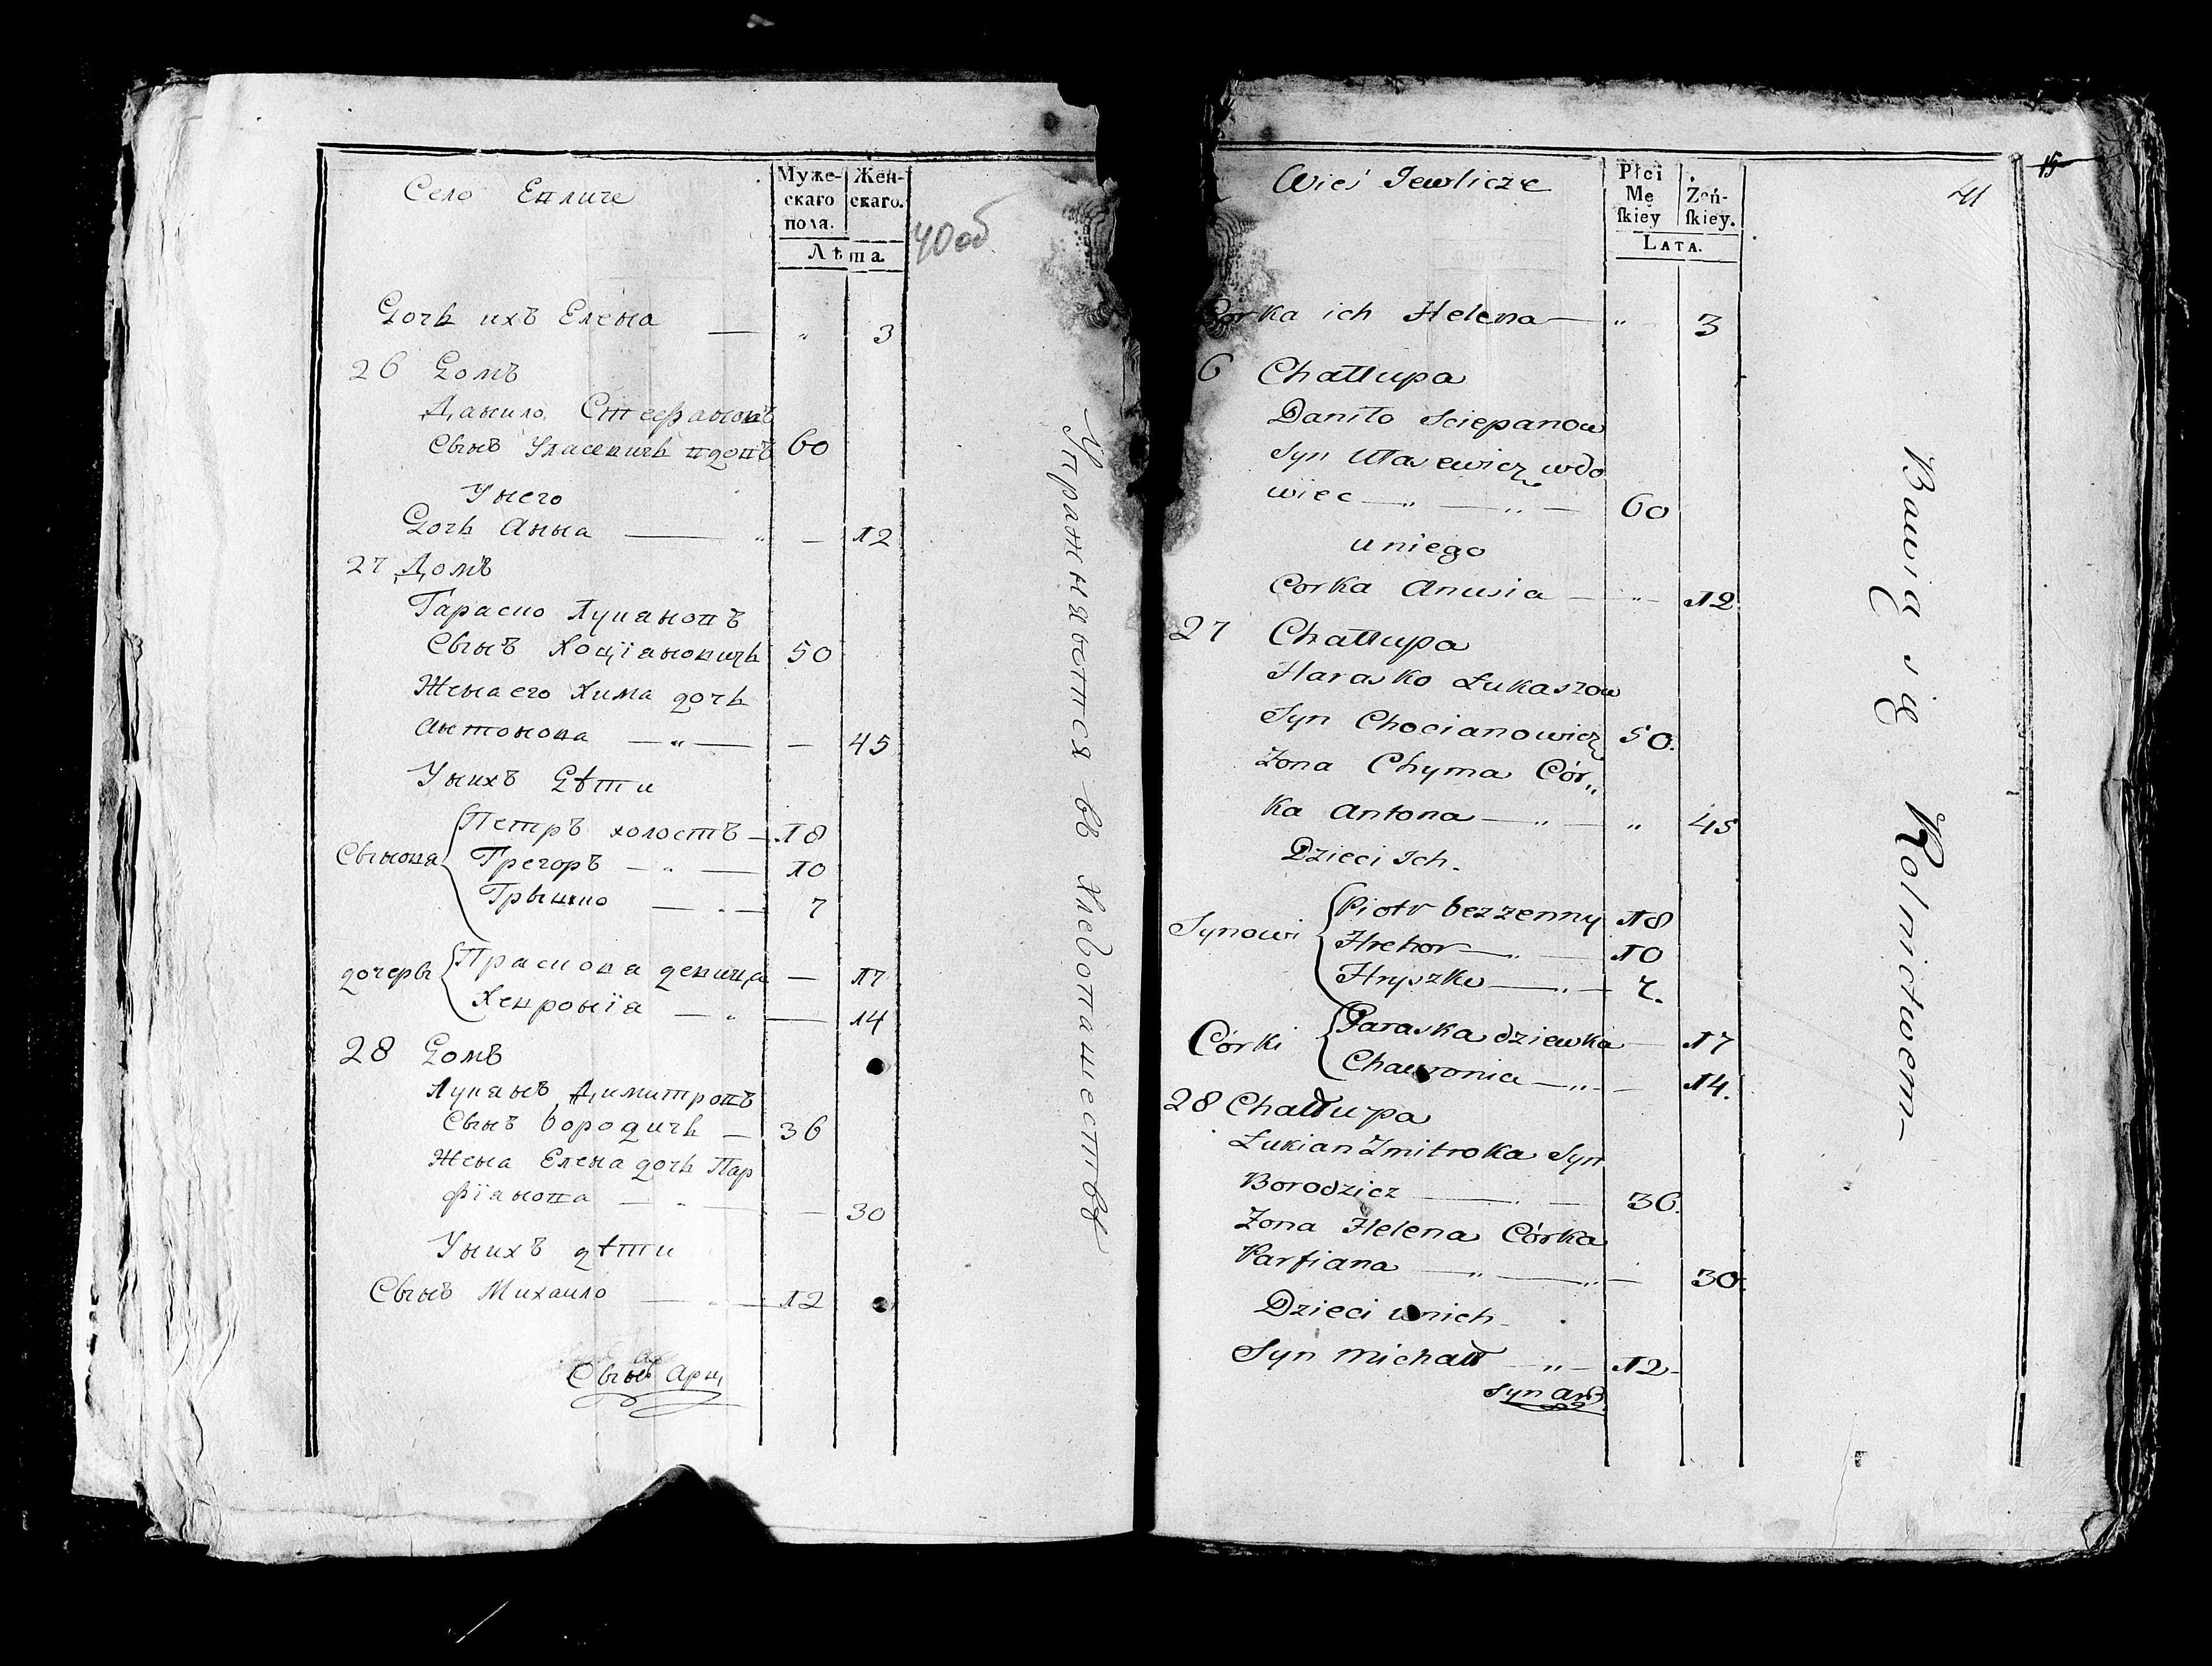 Село Евличе
Муже-
скаго
пола.
Жен-
скаго.
Лѣта.
40об
Дочь ихъ Елена — „ 3
26 Домъ
Данило Стефановъ
Сынъ Уласевичь вдовъ 60
У него
Дочь Анна — „ — 12
27 Домъ
Гараско Лукановъ
Сынъ Хоціановичь 50
Жена его Хима дочь
Антонова — „ — — 45
У нихъ Дѣти
Сынове
Петръ холостъ — 18
Грегоръ — „ — 10
Грышко — „ — 7
дочеры
Праскова девица — 17
Хевронїа — „ — 14
28 Домъ
Лукянъ Димитровъ
Сынъ Бородичь — 36
Жена Елена дочь Пар
фїанова — „ — — 30
У нихъ дѣти
Сынъ Михаило — „ — 12
Сынъ Арц,
Упражняются въ Хлебопашествѣ
Wieś Jewlicze
Płci
Mę
skiey
Żeń-
skiey.
LATA.
41
15
Corka ich Helena — „ 3
6 Chałłupa
Daniło Sciepanow
Syn Ułasewicz wdo
wiec — „ — „ — 60
u niego
Corka Anusia — „ — 12
27 Chałłupa
Harasko Łukaszow
Syn Chocianowicz 50.
Zona Chyma Cór„
ka Antona — „ — „ 45
Dzieci Ich.
Synowi
Piotr bezzenny 18
Hrehor — „ — 10
Hryszko — „ — 7.
Córki
Paraska dziewka — 17
Chawronia — „ — 14.
28 Chałłupa
Łukian Zmitroka Syn
Borodzicz — „ — 36.
Zona Helena Córka
Parfiana — „ — „ — 30.
Dzieci u nich
Syn Michałł — „ — 12
Syn Ard.
Bawią się Rolnictwem